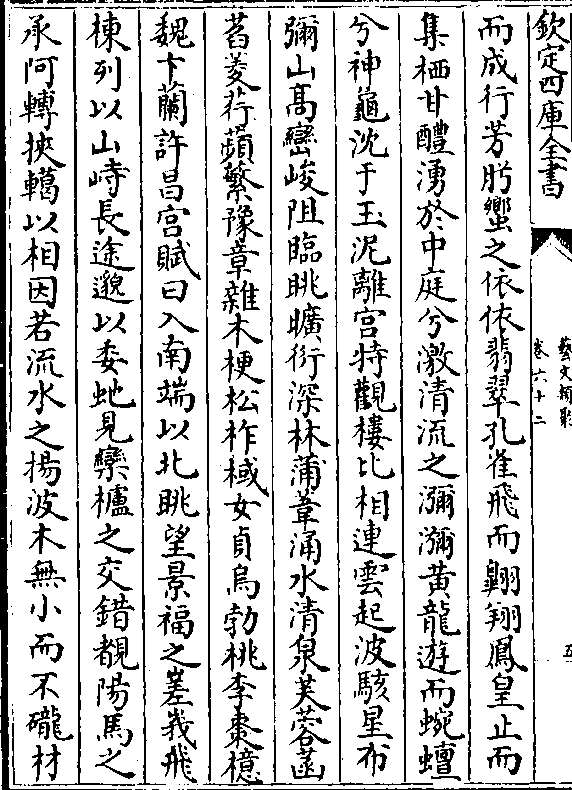 欽定四庫全書
藝文類聚
卷六十二
五
而成行芳肸蠁之依依翡翠孔雀飛而翺翔鳳皇止而
集栖甘醴湧於中庭兮激清流之瀰瀰黄龍遊而蜿蟺
兮神龜沈于玉泥離宫特觀樓比相連雲起波駭星布
彌山髙巒峻阻臨眺曠衍深林蒲葦涌水清泉芙蓉菡
萏菱荇蘋蘩豫章雜木梗松柞棫女貞烏勃桃李棗檍
魏卞蘭許昌宫賦曰入南端以北眺望景福之嵳峩飛
棟列以山峙長途邈以委虵見欒櫨之交錯覩陽馬之
承阿轉挾轕以相因若流水之揚波木無小而不礲材